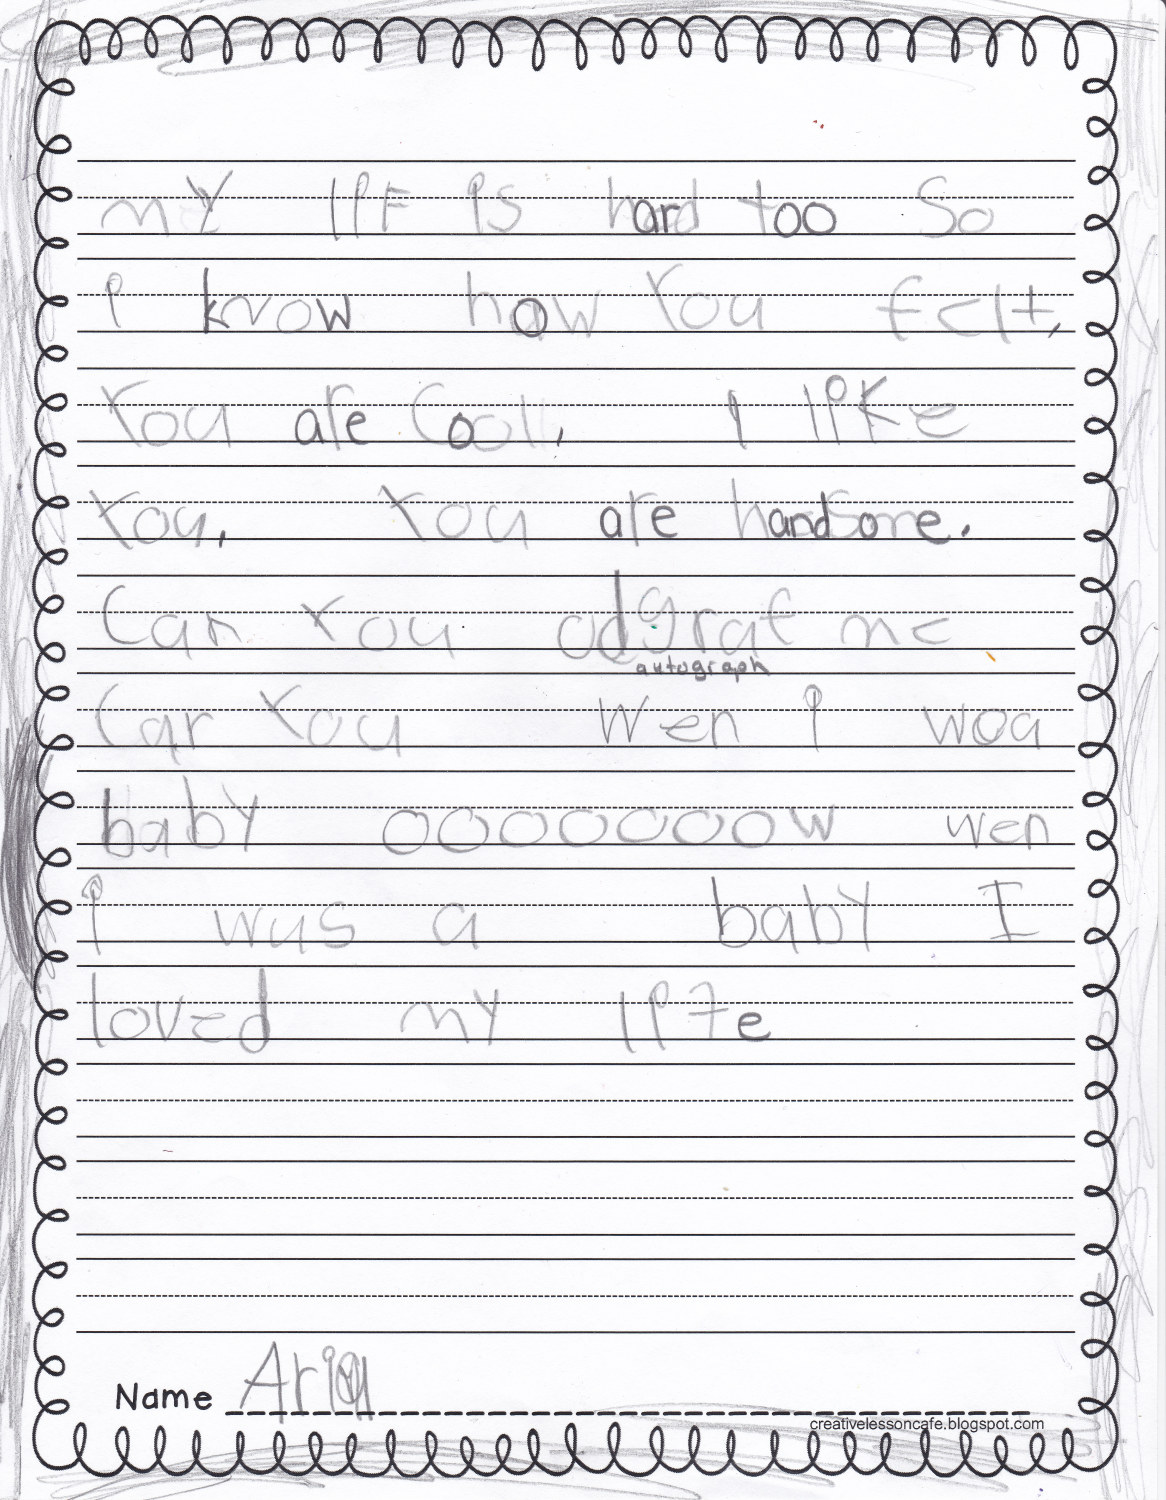 my lif is hard too So
i know how You felt,
You are Cool, I like
You, You are handsome.
Can You odgraf me
autograph
Can You wen i woa
baby oooooooow wen
i wus a baby I
loved my life
Name Aria
creativelessoncafe.blogspot.com